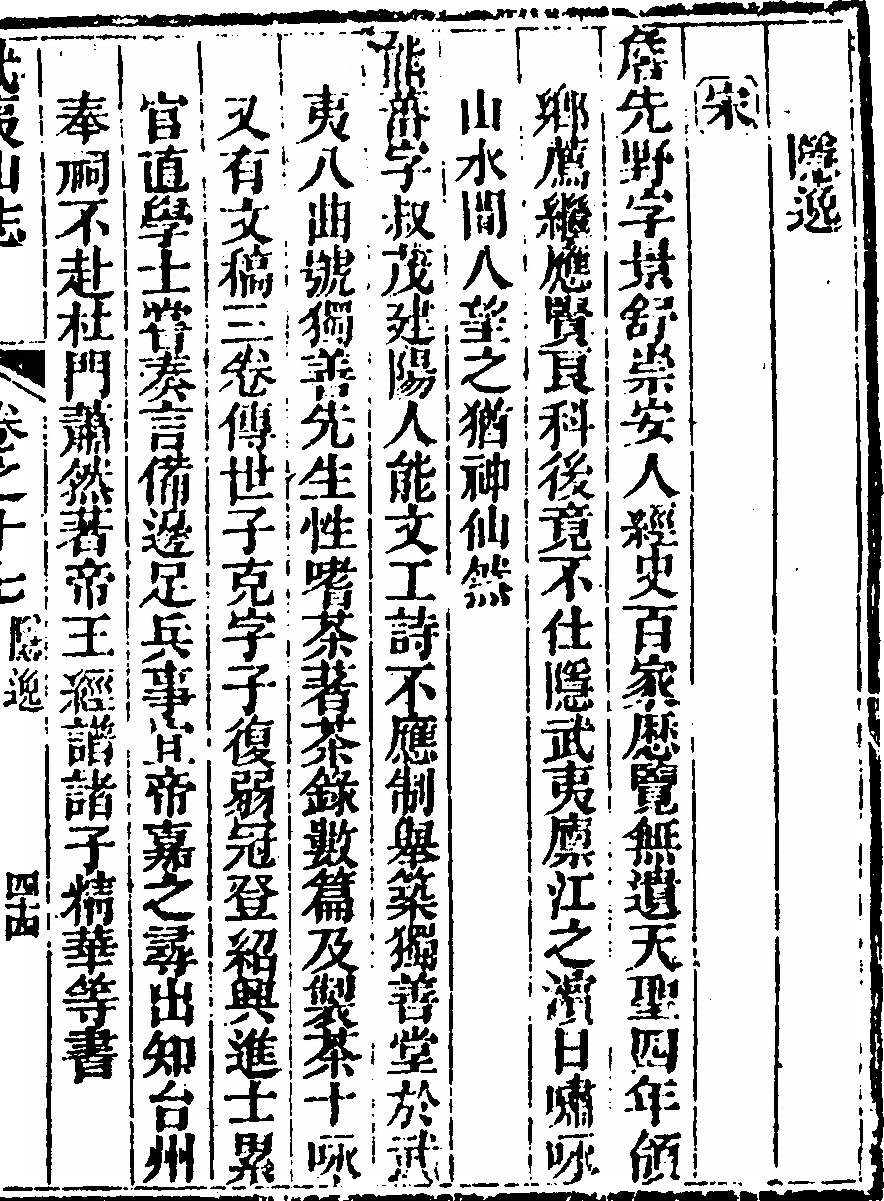 隱逸
宋
詹先野字景舒崇安人經史百家歷覽無遺天聖四年領
鄉薦繼應賢良科後竟不仕隱武夷廪江之濱日嘯咏
山水間人望之猶神仙然
熊蕃字叔茂建陽人能文工詩不應制舉築獨善堂於武
夷八曲號獨善先生性嗜茶著茶錄數篇及製茶十咏
又有文稿三卷傳世子克字子復弱冠登紹興進士累
官直學士嘗奏言備邊足兵事宜帝嘉之尋出知台州
奉祠不赴杜門蕭然著帝王經譜諸子精華等書
武夷山志
卷之十七
隱逸
四十四